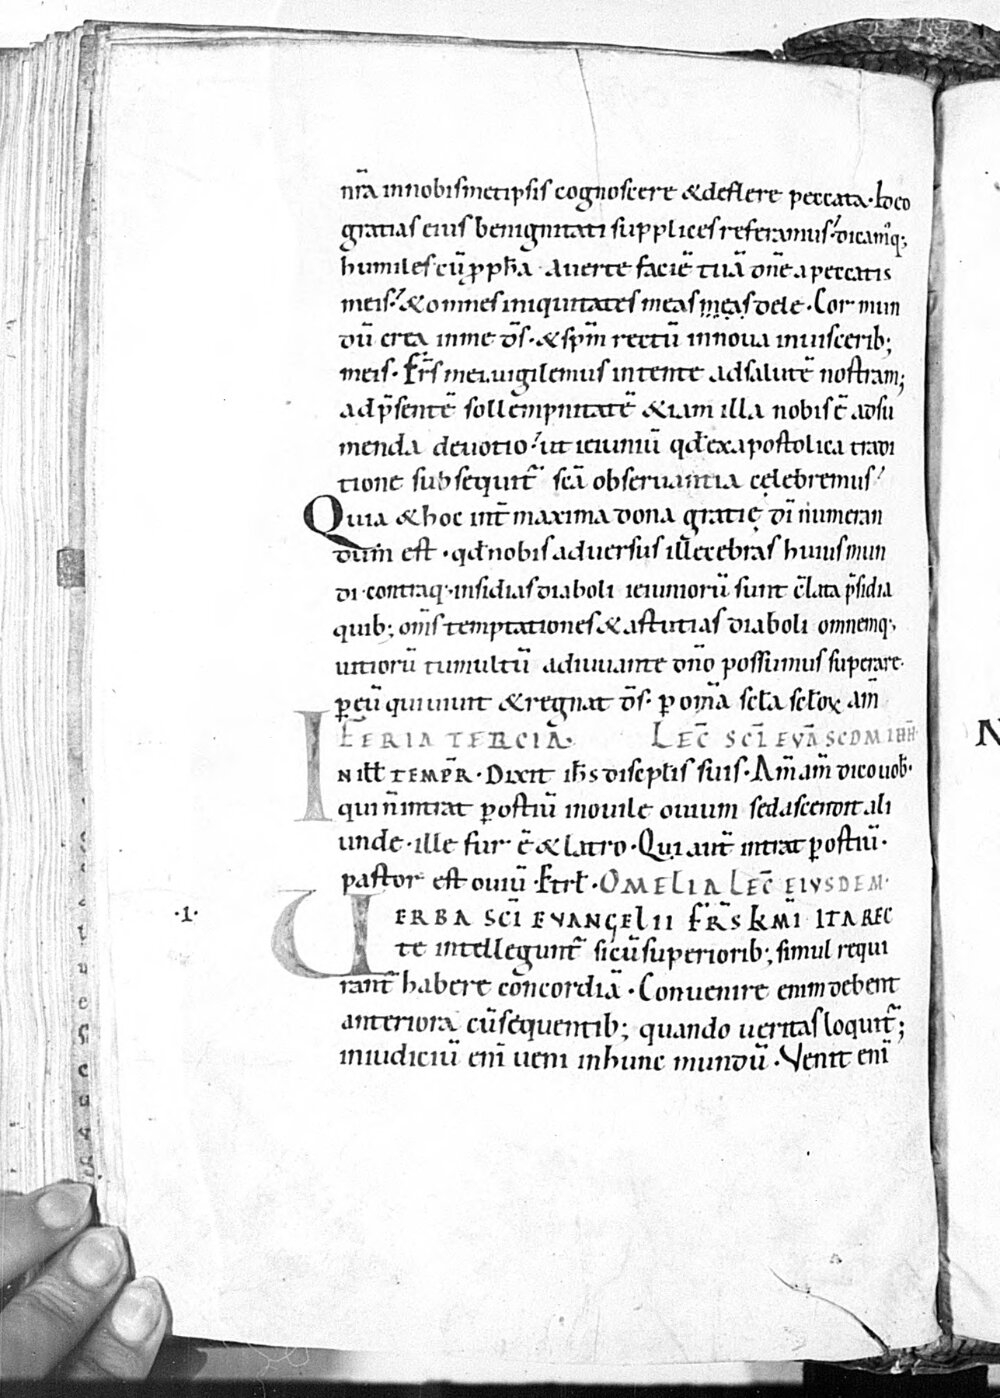 nr̄a innobismetipsis cognoscere &deflere peccata. Ideo
gratias eius benignitati supplices referamus. dicam̄q;
humiles cū p̱pħa. Auerte faciē tuā dn̄e apeccatis
meis. &omnes iniquitates meas meas dele. Cor mun
dū crea inme ds̄. &sp̄m rectū innoua inuiscerib;
meis. Fr̄s mei uigilemus intente adsalutē nostram;
adp̄sentē sollempnitatē &iam illa nobis ē adsu
menda deuotio. ut ieiuniū qđ exapostolica tradi
tione subsequit̄ sc̄a obseruantia cęlebremus.
Quia &hoc int̄ maxima dona gratię dī numeran
dum est. qđ nobis aduersus illecebras huius mun
di. contraq. insidias diaboli ieiuniorū sunt c̄lata p̄sidia
quib; om̄s temptationes &astutias diaboli omnemq;
uitiorū tumultū adiuuante dn̄o possumus superare.
ꝑ eū qui uiuit &regnat ds̄. ꝑ om̄a scła scłoꝝ am̄
FERIA TERCIA. LEC̄ SC̄I EVĀ SCDM IOH̄
IN ILŁ TEMPR̄. Dixit ih̄s discipłis suis. Am̄ am̄ dico uob̄.
qui n̄ intrat ꝑ ostiū inouile ouium sed ascendit ali
unde. ille fur ē &latro. Qui aut̄ intrat ꝑ ostiū.
pastor est ouiū. Et rł. OMELIA LEC̄ EIVSDEM.
.1. UERBA SC̄I EVANGELII FR̄S KM̄I ITA REC
te intellegunt̄ si cū superiorib; simul requi
rant̄ habere concordiā. Conuenire enim debent
anteriora cū sequentib; quando ueritas loquit̄;
iniudiciū enī ueni inhunc mundū. Venit enī
N